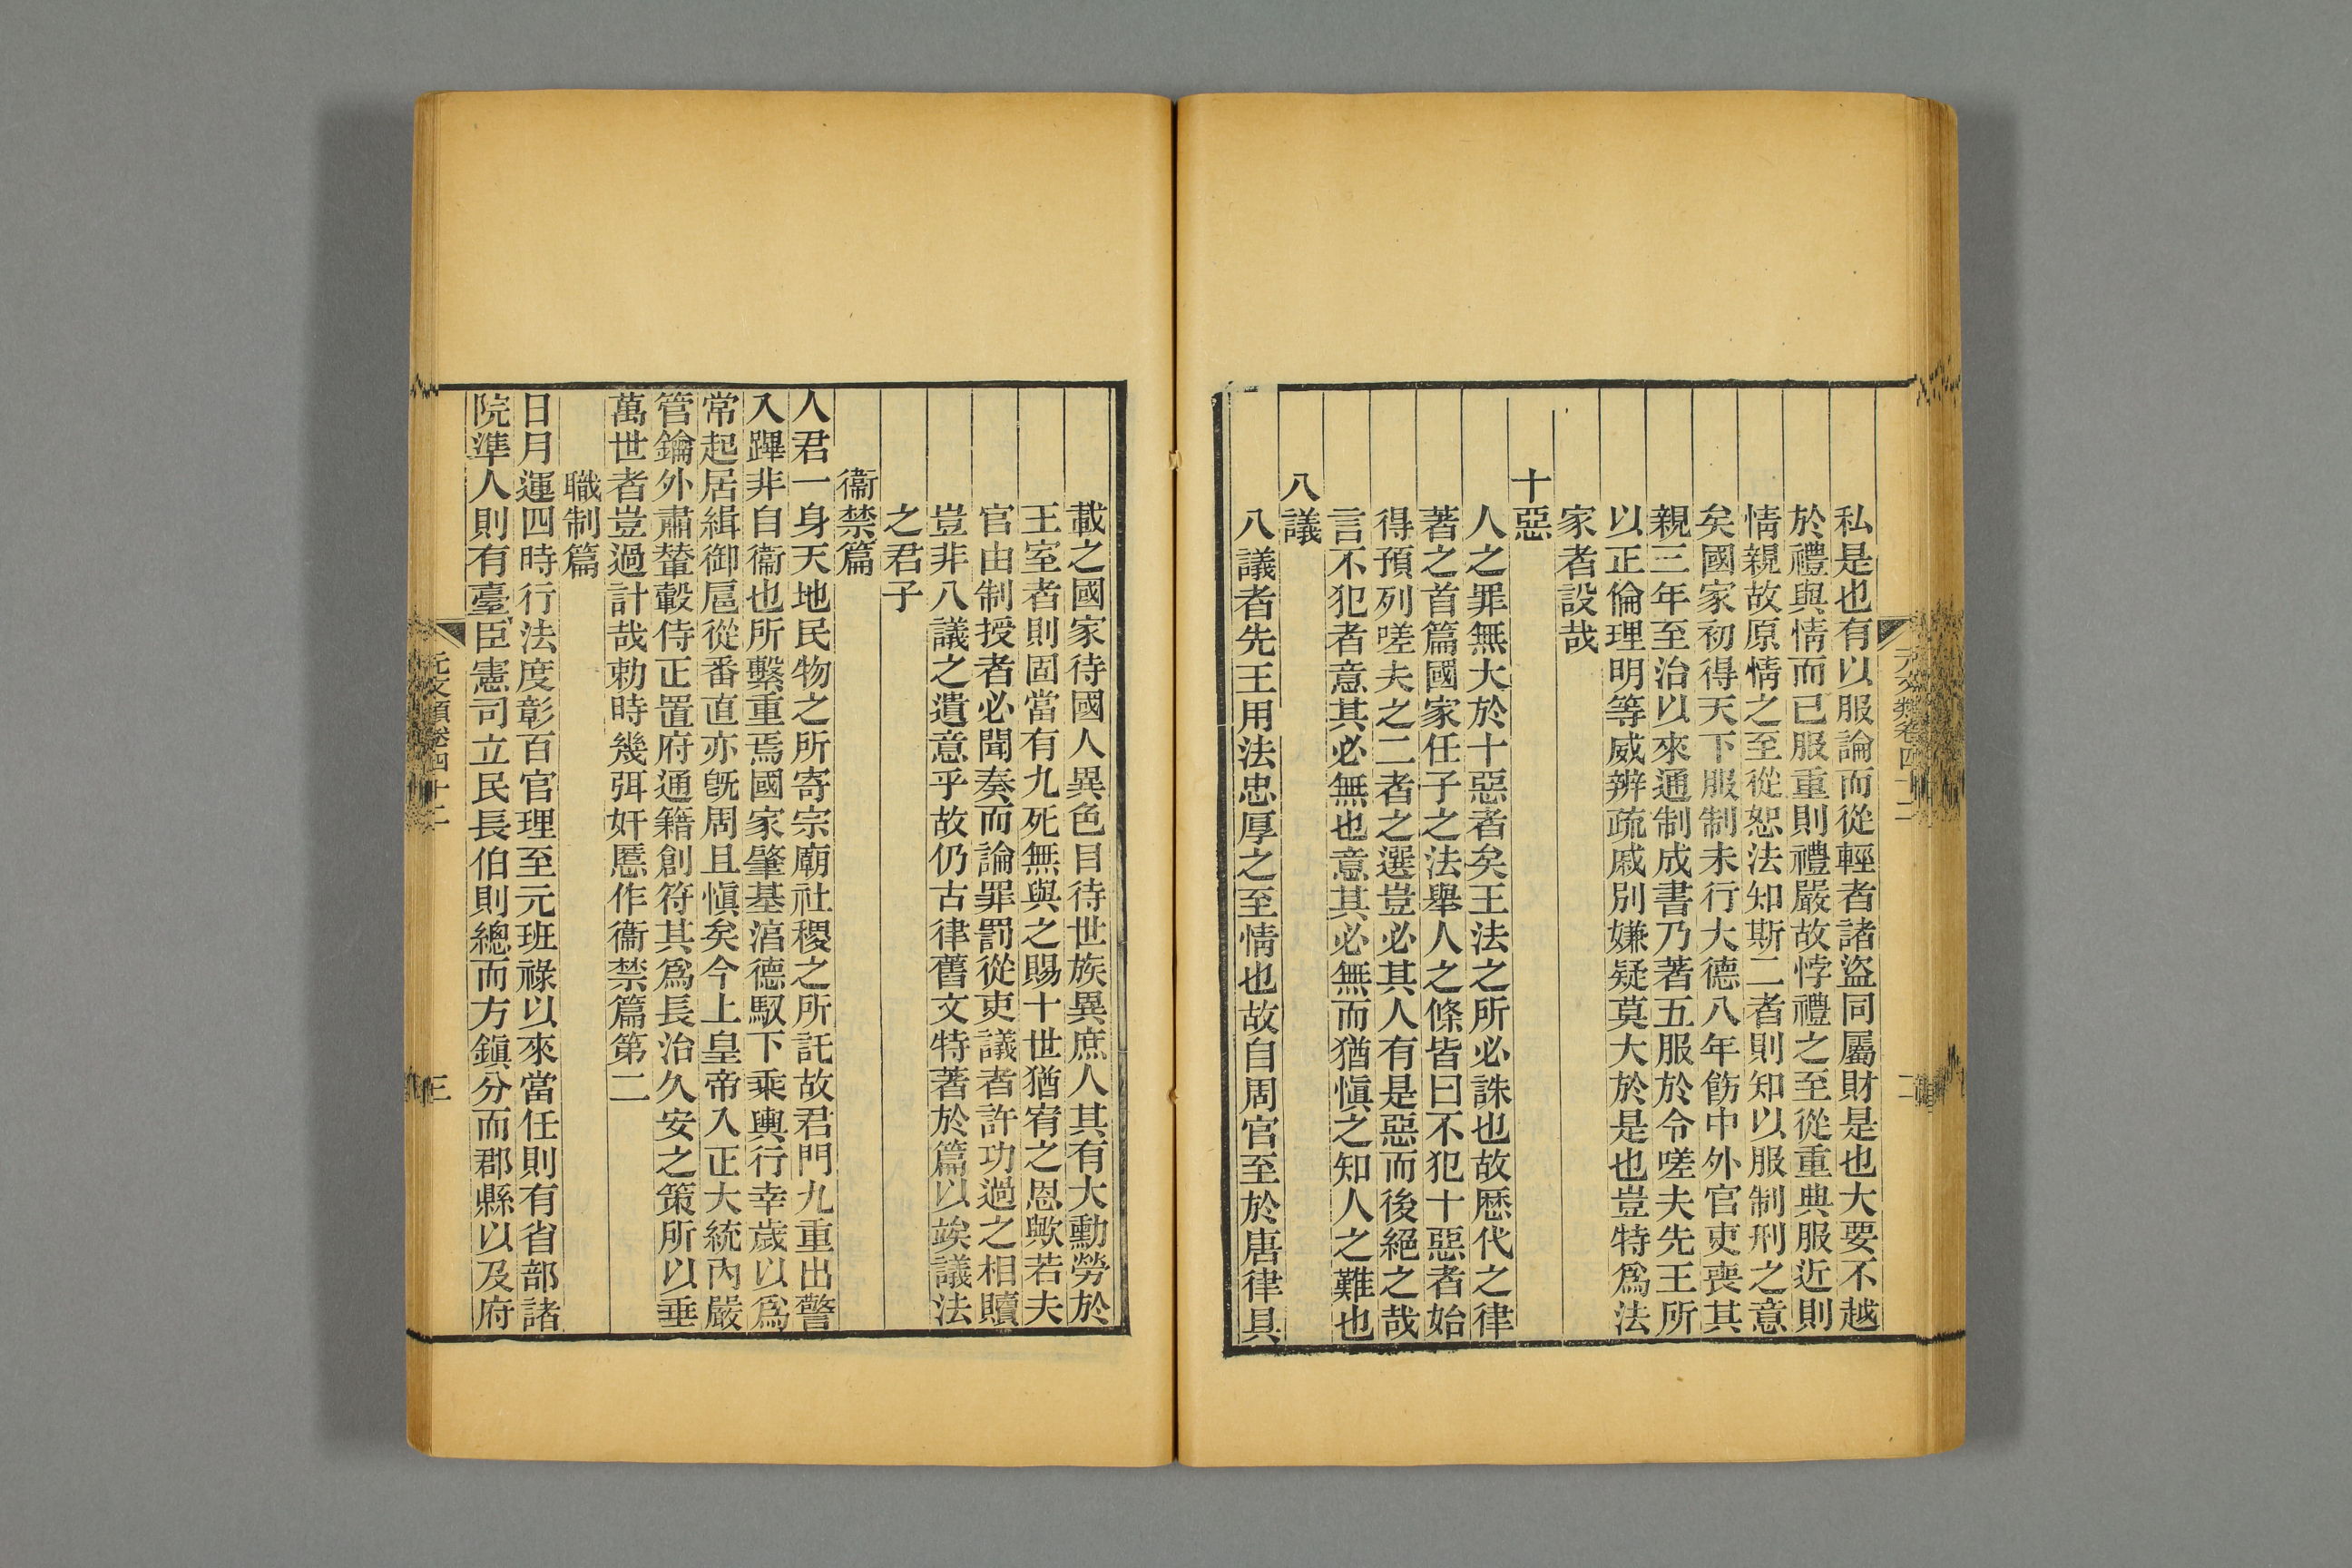 私是也有以服論而從輕者諸盜同屬財是也大要不越
於禮與情而已服重則禮嚴故悖禮之至從重典服近則
情親故原情之至從恕法知斯二者則知以服制刑之意
矣國家初得天下服制未行大德八年飭中外官吏喪其
親三年至治以來通制成書乃著五服於令嗟夫先王所
以正倫理明等威辨疏戚別嫌疑莫大於是也豈特爲法
家者設哉
十惡
人之罪無大於十惡者矣王法之所必誅也故歷代之律
著之首篇國家任子之法舉人之條皆曰不犯十惡者始
得預列嗟夫之二者之選豈必其人有是惡而後絕之哉
言不犯者意其必無也意其必無而猶愼之知人之難也
八議
八議者先王用法忠厚之至情也故自周官至於唐律具
載之國家待國人異色目待世族異庶人其有大勳勞於
王室者則固當有九死無與之賜十世猶宥之恩歟若夫
官由制授者必聞奏而論罪罰從吏議者許功過之相贖
豈非八議之遺意乎故仍古律舊文特著於篇以竢議法
之君子
衞禁篇
人君一身天地民物之所寄宗廟社稷之所託故君門九重出警
入蹕非自衞也所繫重焉國家肇基涫德馭下乘輿行幸歲以爲
常起居緝御扈從番直亦旣周且愼矣今上皇帝入正大統內嚴
管鑰外肅輦轂侍正置府通籍創符其爲長治久安之策所以垂
萬世者豈過計哉勅時幾弭奸慝作衞禁篇第二
職制篇
日月運四時行法度彰百官理至元班祿以來當任則有省部諸
院準人則有臺臣憲司立民長伯則總而方鎭分而郡縣以及府
元文類卷四十二
三
元文類卷四十二
二